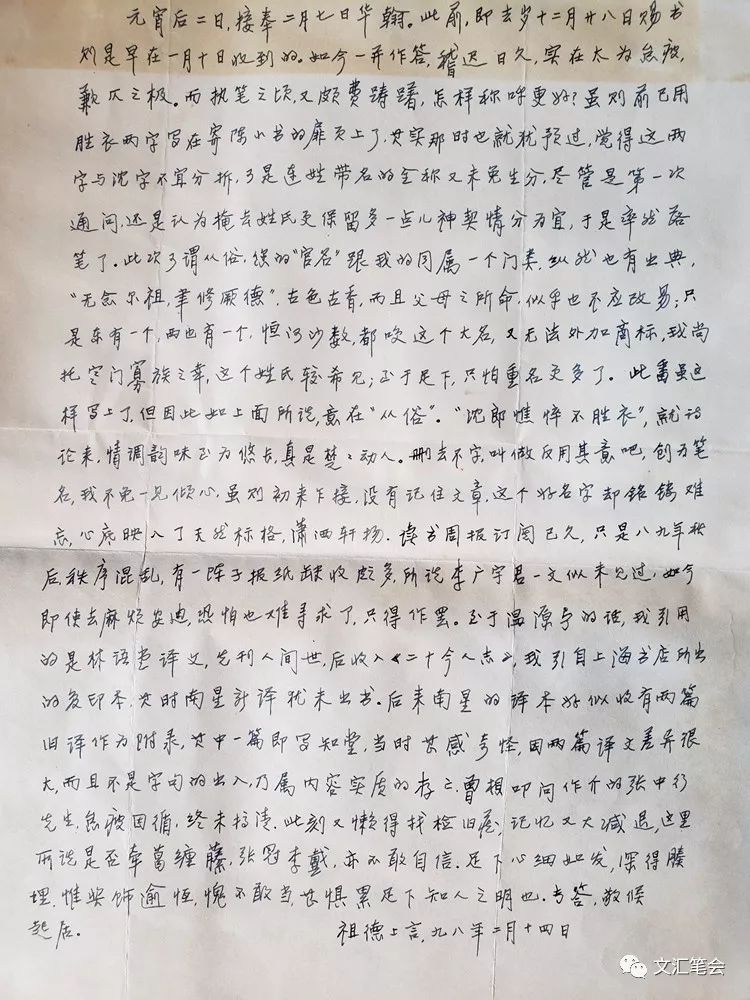 元宵后二日,接奉二月七日华翰。此前,即去岁十二月廿八日赐书
则是早在一月十日收到的。如今一并作答,稽迟日久,实在太为怠疲,
歉仄之极。而执笔之顷,又颇费踌躇,怎样称呼更好?虽则前已用
胜衣两字写在寄陈小书的扉页上了,其实那时也就犹预过,觉得这两
字与沈字不宜分拆,可是连姓带名的全称又未免生分,尽管是第一次
通问,还是认为掩去姓氏更保留多一点儿神契情分为宜,于是率然落
笔了。此次可谓从俗,缘的“官名”跟我的同属一个门类,纵然也有出典,
“无念尔祖,聿修厥德”,古色古香,而且父母之所命,似乎也不应改易;只
是东有一个,西也有一个,恒河沙数,都咬这个大名,又无法外加商标,我尚
托寒门寡族之幸,这个姓氏较希见;至于足下,只怕重名更多了。此番虽这
样写上了,但因此如上面所说,意在“从俗”。“沈郎憔悴不胜衣”,就诗
论来,情调韵味至为悠长,真是楚楚动人。删去不字,叫做反用其意吧,创为笔
名,我不免一见倾心,虽则初来乍接,没有记住文章,这个好名字却铭镌难
忘,心底映入了天然标格,潇洒轩扬。读书周报订阅已久,只是八九年秋
后,秩序混乱,有一阵子报纸缺收颇多,所说李广宇君一文似未见过,如今
即使去麻烦安迪,恐怕也难寻求了,只得作罢。至于温源宁的话,我引用
的是林语堂译文,先刊人间世,后收入《二十今人志》,我引自上海书店所出
的复印本,其时南星新译犹未出书。后来南星的译本好似收有两篇
旧译作为附录,其中一篇即写知堂,当时甚感奇怪,因两篇译文差异很
大,而且不是字句的出入,乃属内容实质的存亡,曾相叩问作介的张中行
先生,怠疲因循,终未搞清。此刻又懒得找检旧卷,记忆又大减退,这里
所说是否牵葛缠藤,张冠李戴,亦不敢自信。足下心细如发,深得腠
理,惟奖饰逾恒,愧不敢当,甚惧累足下知人之明也。专答,敬候
起居。
祖德上言,九八年二月十四日
文汇笔会